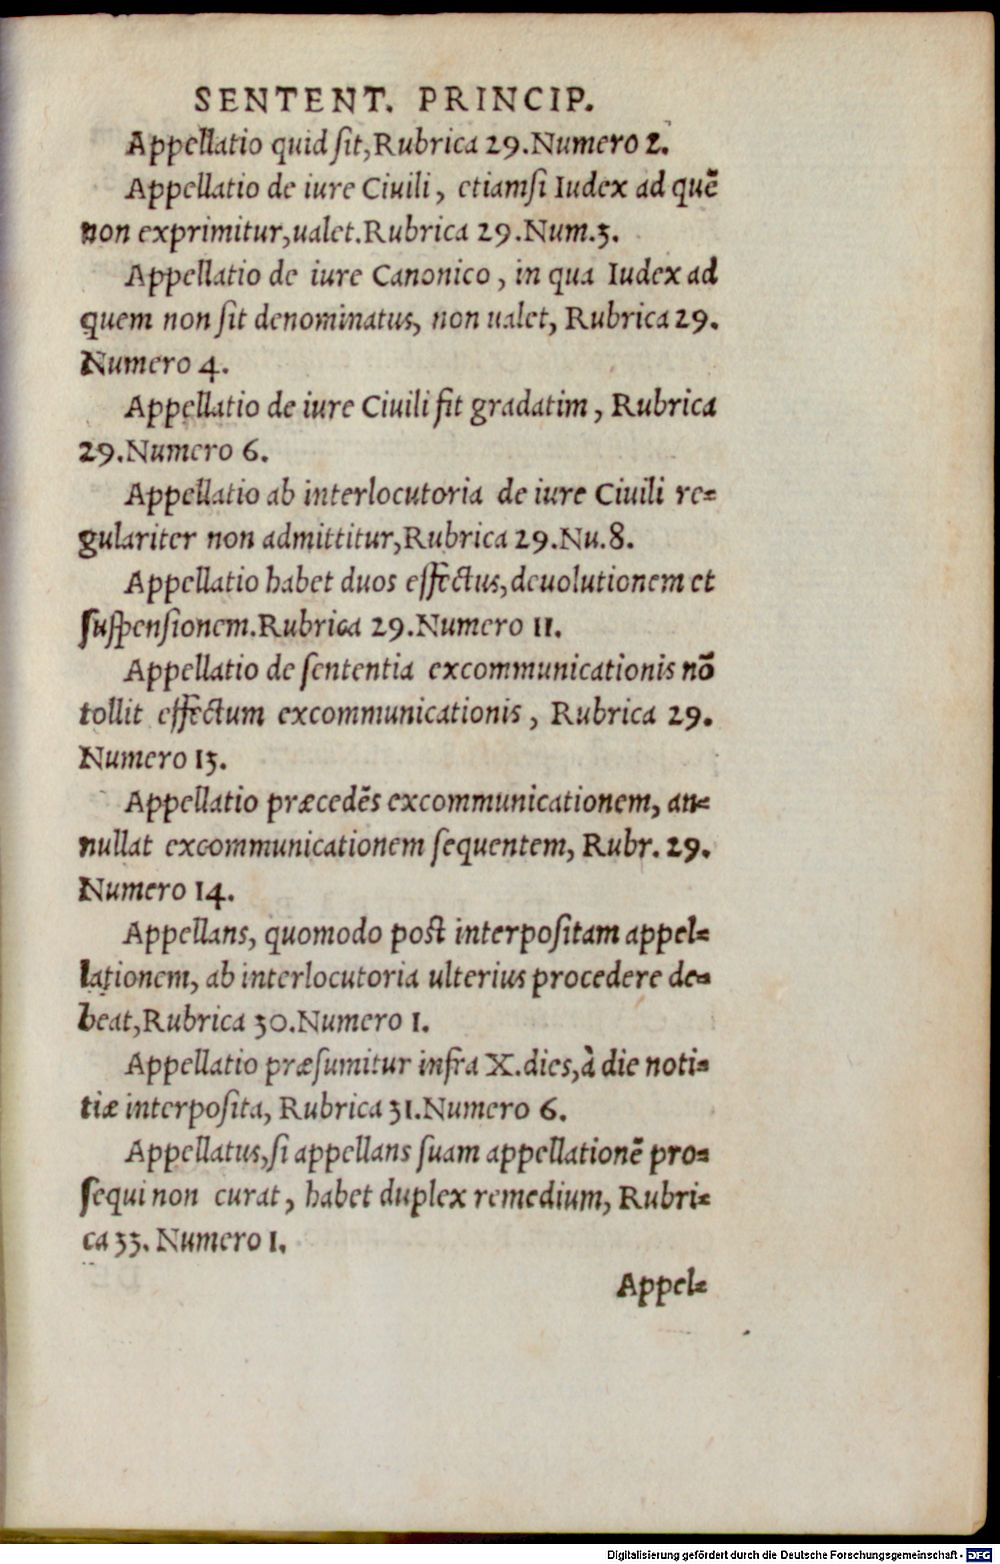 SENTENT. PRINCIP.
Appellatio quid sit, Rubrica 29. Numero 2.
Appellatio de iure Ciuili, etiamsi Iudex ad quē
non exprimitur, ualet. Rubrica 29. Num. 3.
Appellatio de iure Canonico, in qua Iudex ad
quem non sit denominatus, non ualet, Rubrica 29.
Numero 4.
Appellatio de iure Ciuili fit gradatim, Rubrica
29. Numero 6.
Appellatio ab interlocutoria de iure Ciuili re=
gulariter non admittitur, Rubrica 29. Nu. 8.
Appellatio habet duos effectus, deuolutionem et
suspensionem. Rubrica 29. Numero 11.
Appellatio de sententia excommunicationis nō
tollit effectum excommunicationis, Rubrica 29.
Numero 13.
Appellatio præcedēs excommunicationem, an=
nullat excommunicationem sequentem, Rubr. 29.
Numero 14.
Appellans, quomodo post interpositam appel=
lationem, ab interlocutoria ulterius procedere de=
beat, Rubrica 30. Numero 1.
Appellatio præsumitur infra X. dies, à die noti=
tiæ interposita, Rubrica 31. Numero 6.
Appellatus, si appellans suam appellationē pro=
sequi non curat, habet duplex remedium, Rubri=
ca 33. Numero 1.
Appel=
Digitalisierung gefördert durch die Deutsche Forschungsgemeinschaft - DFG